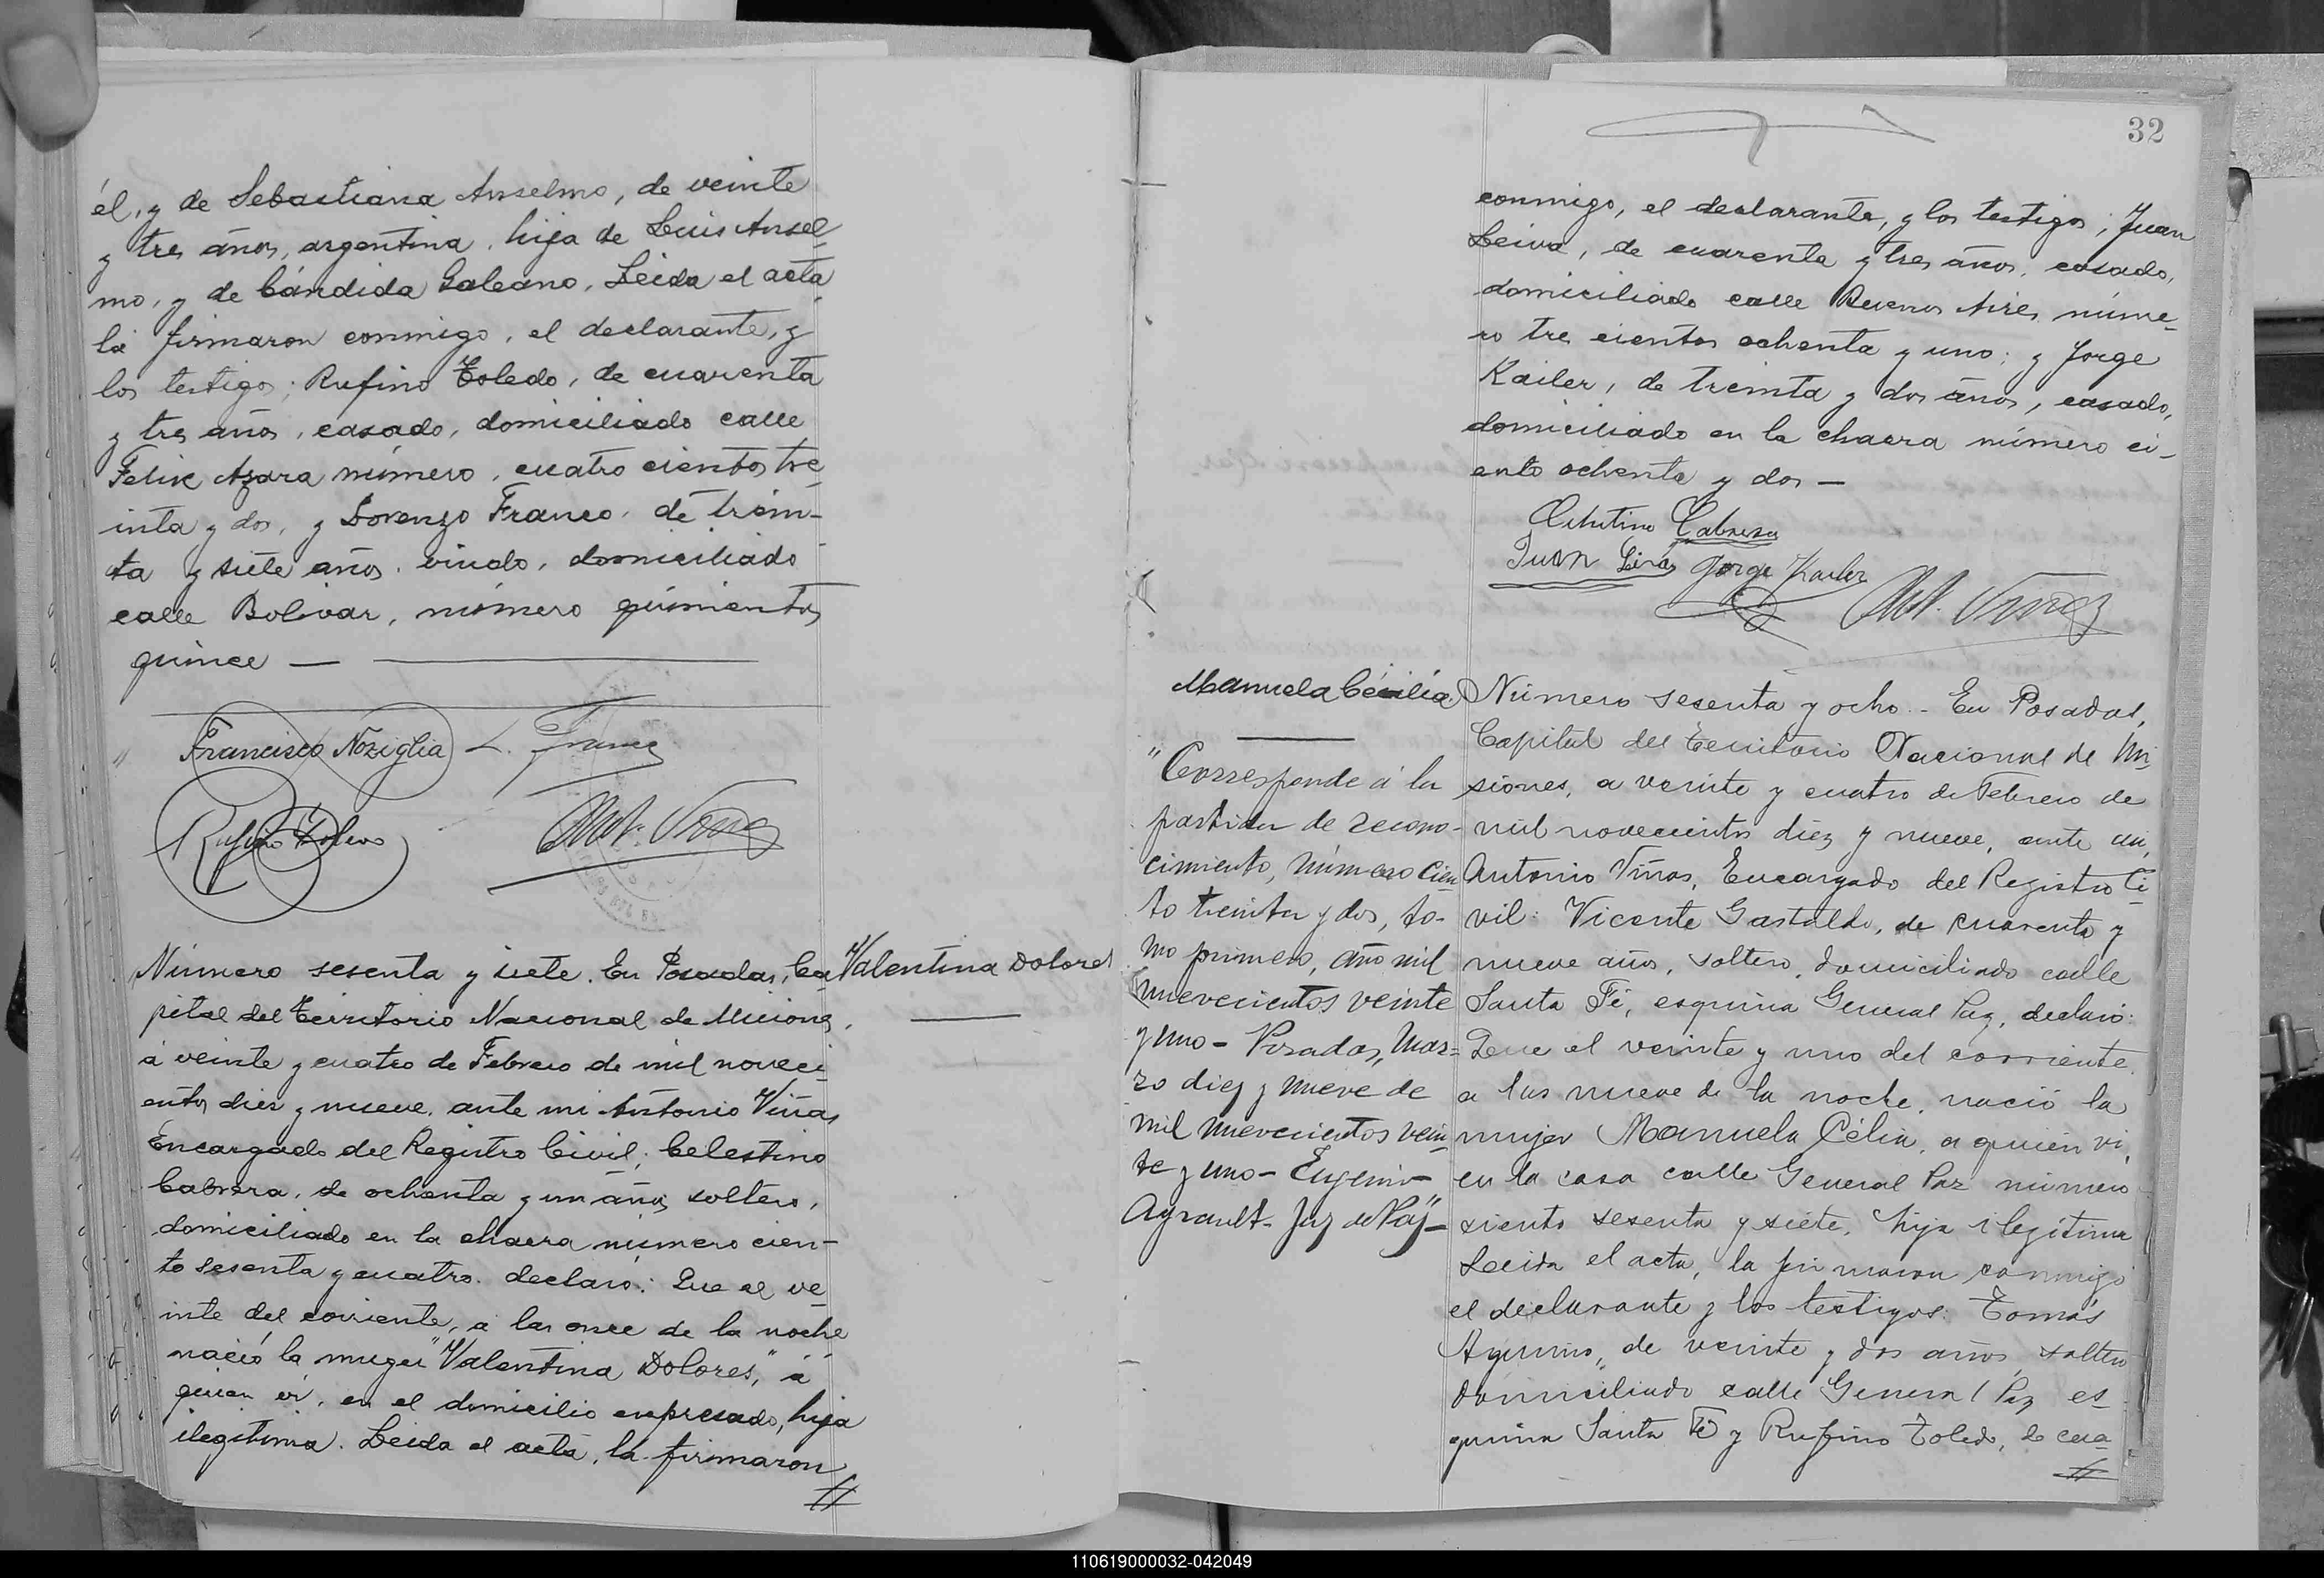 él, y de Sebastiana Anselmo, de veinte
y tres años, argentina, hija de Luis Ansel-
mo, y de Cándida Galeano. Leida el acta
la firmaron conmigo, el declarante, y
los testigos; Rufino Toledo, de cuarenta
y tres años, casado, domiciliado calle
Felix Azara número, cuatro cientos tre-
inta y dos, y Lorenzo Franco, de trein-
ta y siete años, viudo, domiciliado
calle Bolivar, número quinientos
quince —
Francisco Noziglia L. Franco
Rufino Toledo Ant. Viñas
Valentina Dolores
Número sesenta y siete. En Posadas, Ca-
pital del Territorio Nacional de Misiones,
á veinte y cuatro de Febrero de mil noveci-
entos diez y nueve, ante mi Antonio Viñas
Encargado del Registro Civil; Celestino
Cabrera, de ochenta y un años, soltero,
domiciliado en la chacra número cien-
to sesenta y cuatro, declaró: Que el ve-
inte del corriente, a las once de la noche
nació la muger "Valentina Dolores," á
quien ví, en el domicilio expresado, hija
ilegitima. Leida el acta, la firmaron
//
32
conmigo, el declarante, y los testigos; Juan
Leiva, de cuarenta y tres años, casado,
domiciliado calle Buenos Aires, núme-
ro tres cientos ochenta y uno; y Jorge
Kailer, de treinta y dos años, casado,
domiciliado en la chacra número ci-
ento ochenta y dos —
Cabrera
Juan Jorge Kailer
Ant. Viñas
Manuela Cécilia
"Corresponde á la
partida de recono-
cimiento, número cien-
to treinta y dos, to-
mo primero, año mil
nuevecientos veinte
y uno - Posadas, Mar-
zo diez y nueve de
mil nuevecientos vein-
te y uno - Eugenio
Ayrault - Juz de Paz" -
Número sesenta y ocho - En Posadas,
Capital del Territorio Nacional de Mi-
siones, a veinte y cuatro de Febrero de
mil novecientos diez y nueve, ante mi,
Antonio Viñas, Encargado del Registro Ci-
vil: Vicente Gastaldo, de cuarenta y
nueve años, soltero, domiciliado calle
Santa Fé, esquina General Paz, declaró:
Que el veinte y uno del corriente,
a las nueve de la noche, nació la
mujer Manuela Célia, a quien vi,
en la casa calle General Paz número
siento sesenta y siete, hija ilegítima
Leida el acta, la firmaron conmigo
el declarante y los testigos: Tomás
Aquino, de veinte y dos años, soltero
domiciliado calle General Paz es-
quina Santa Fé y Rufino Toledo, de cua-
//
110619000032-042049